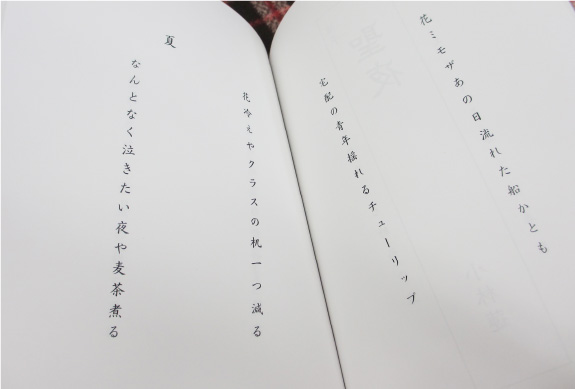 花ミモザあの日流れた船かとも
宅配の青年揺れるチューリップ
花冷えやクラスの机一つ減る
夏
なんとなく泣きたい夜や麦茶煮る